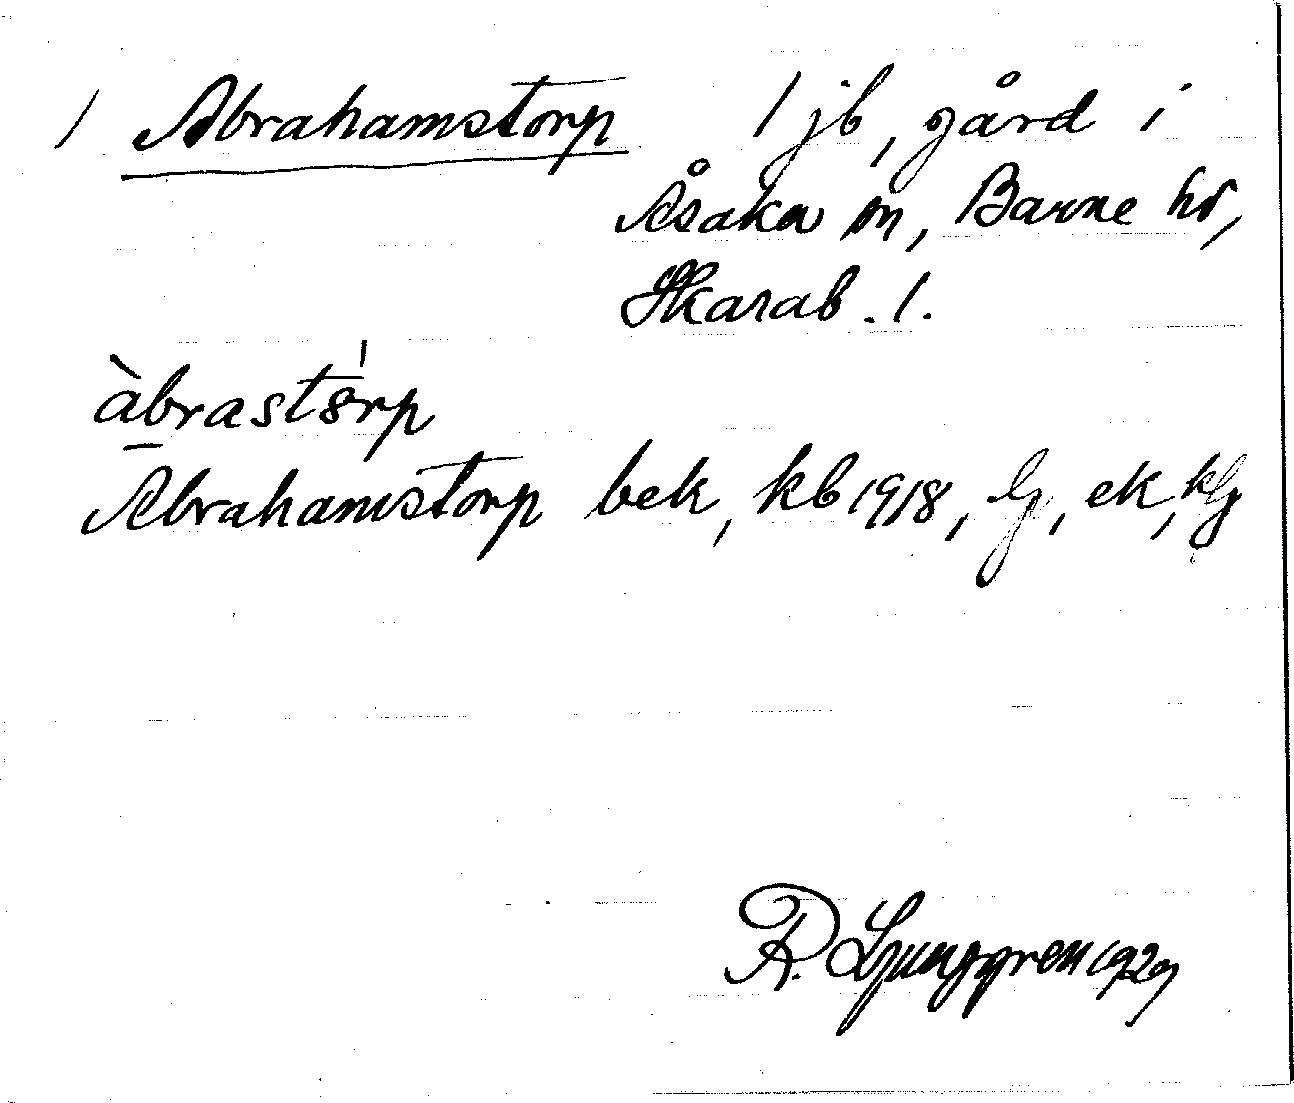 1 Abrahamstorp 1 jb, gård i
Åsaka sn, Barne hd,
Skarab. l.
àbrastórp
Abrahamstorp bek, kb 1918, lj, ek, klj
R. Ljunggren 1929